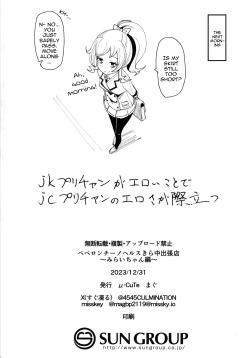 THE
NEXT
MORN-
ING
KH...
N- NO...
YOU
JUST
BARELY
PASS.
MOVE
ALONG...
IS MY
SKIRT
STILL
TOO
SHORT?
Ah, good
morning!
jkプリチャンがエロいことで
jcプリチャンのエロさが際立つ
無断転載・複製・アップロード禁止
ペペロンチーノヘルスきら中出張店
～みらいちゃん編～
2023/12/31
発行 μ-CuTe まぐ
X(すぐ凍る) @4545CULMINATION
misskey @magbp2119@misskey.io
印刷
SUN GROUP
https://www.sungroup.co.jp/